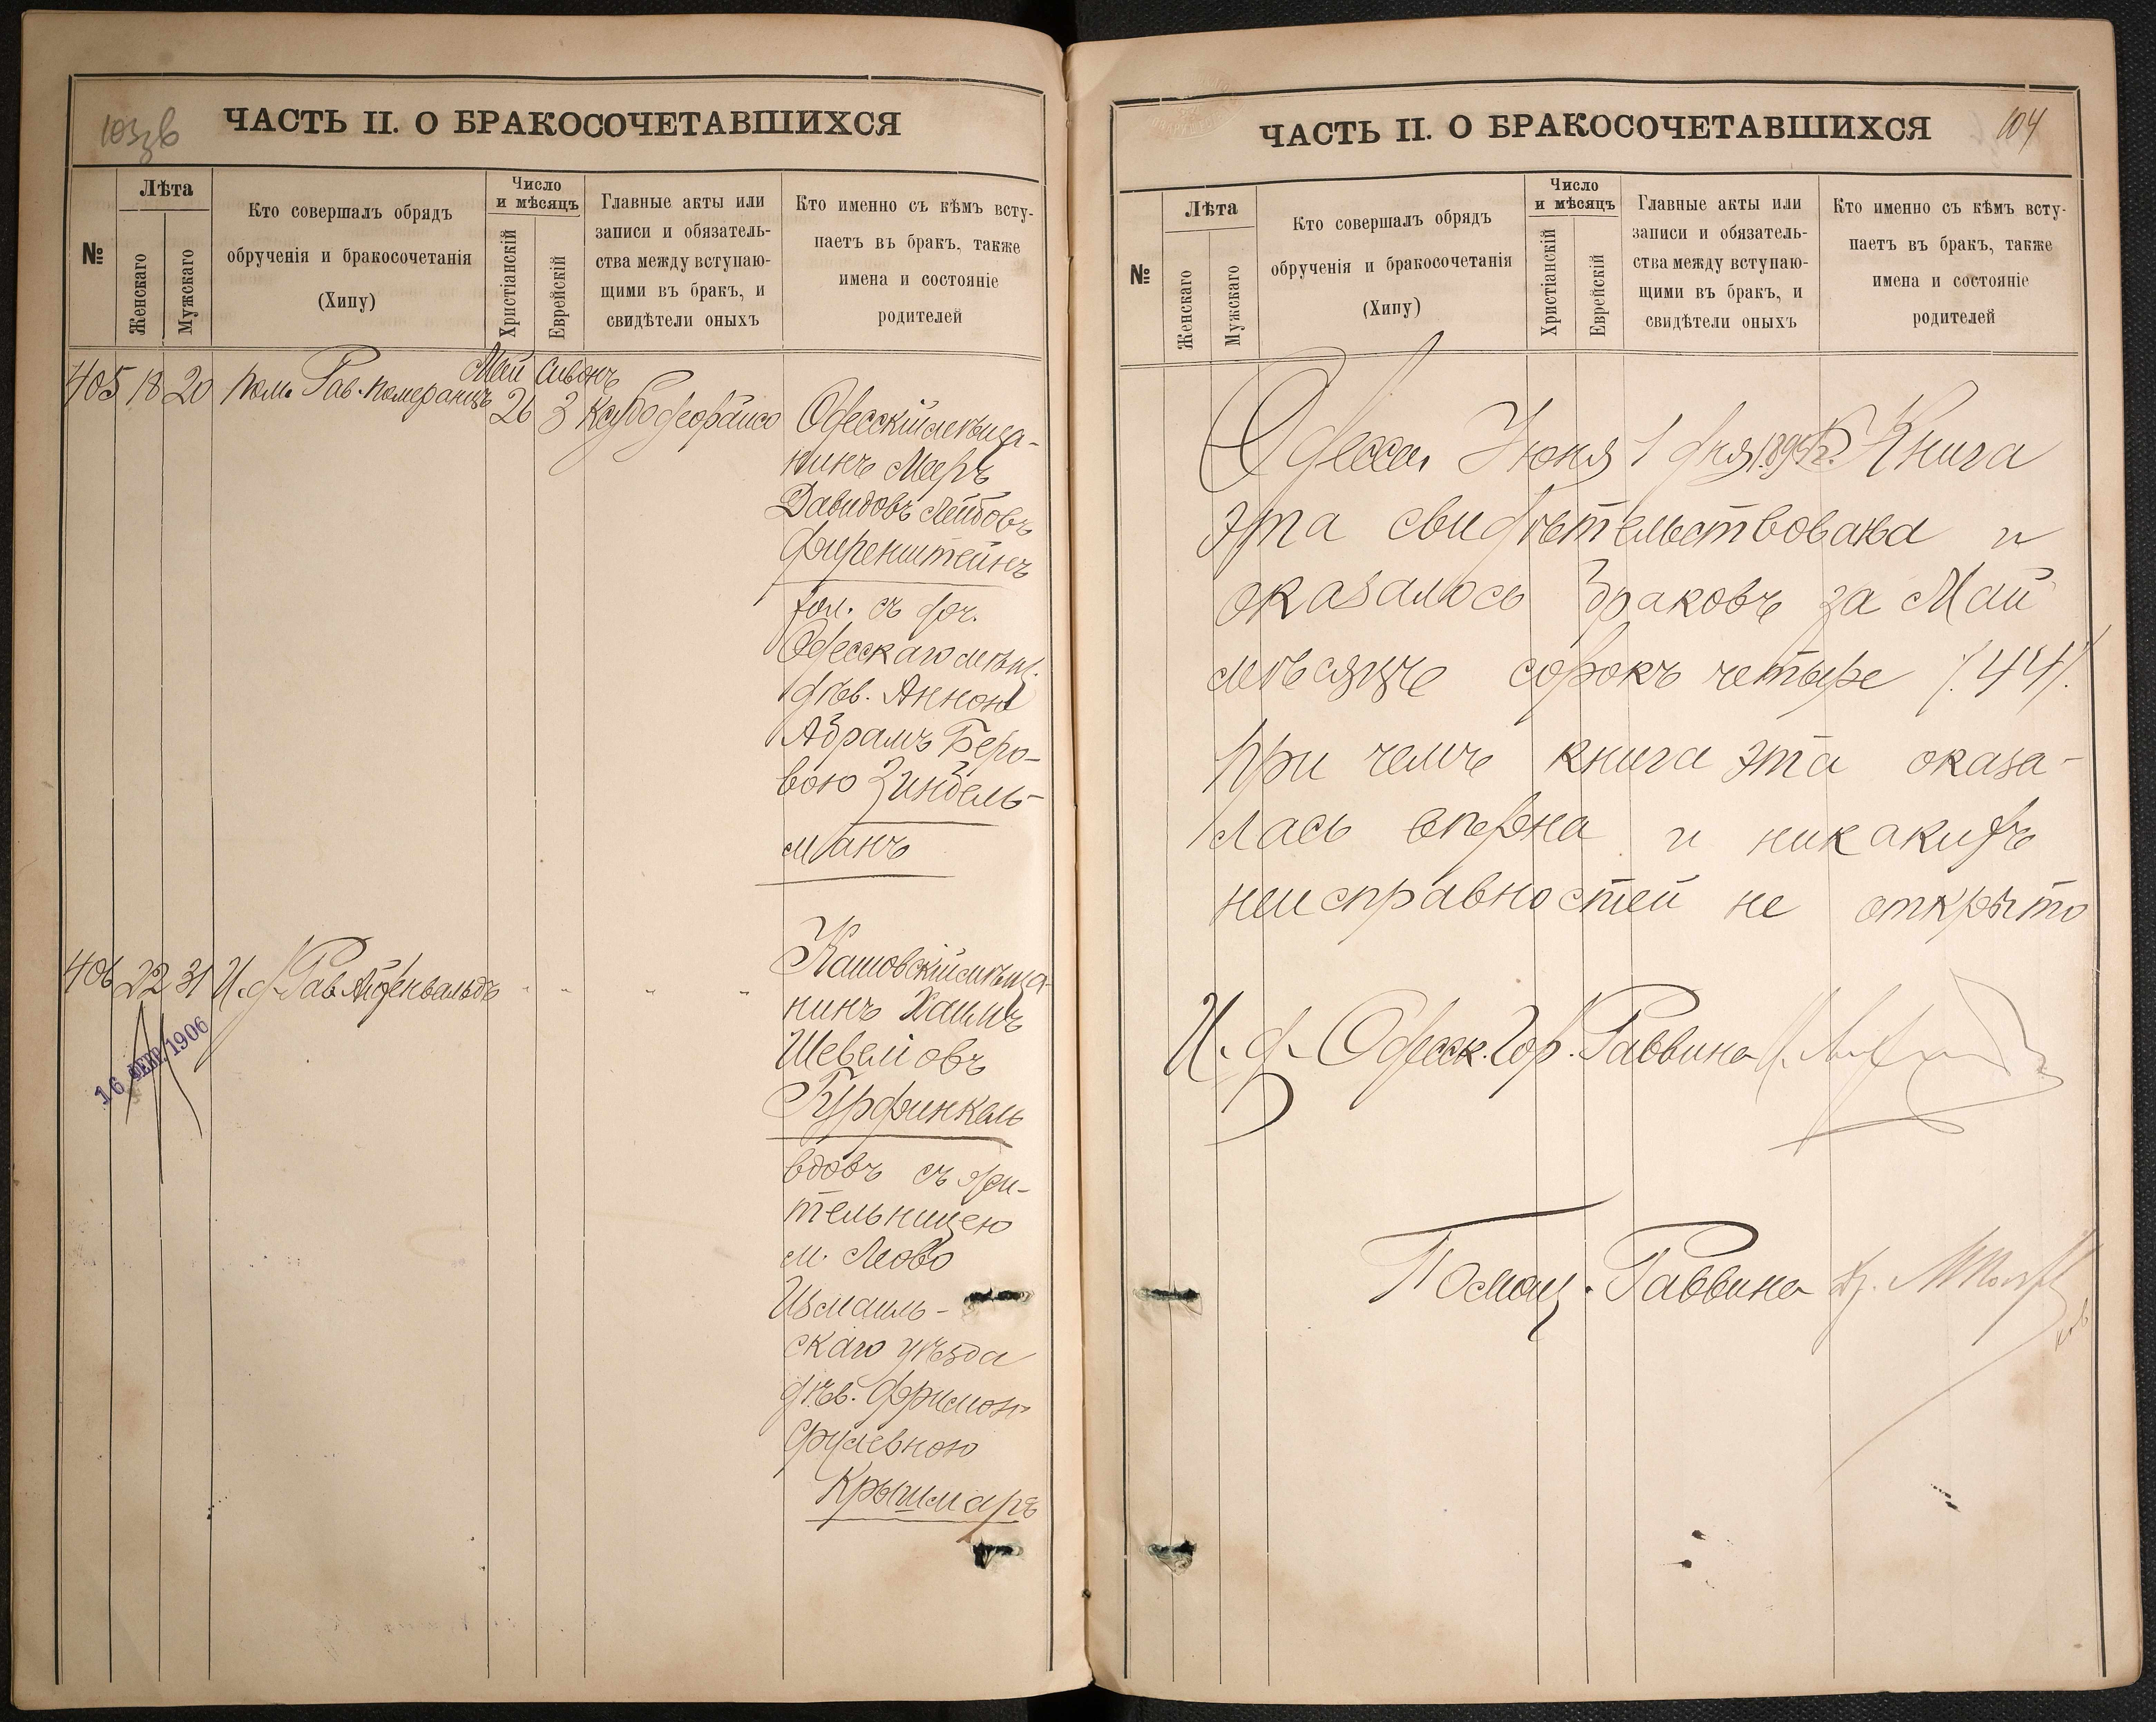 103зв
ЧАСТЬ II. О БРАКОСОЧЕТАВШИХСЯ
№
Лѣта
Женскаго
Мужскаго
Кто совершалъ обрядъ
обрученія и бракосочетанія
(Хипу)
Число
и мѣсяцъ
Христіанскій
Еврейскій
Главные акты или
записи и обязатель-
ства между вступаю-
щими въ бракъ, и
свидѣтели оныхъ
Кто именно съ кѣмъ всту-
паетъ въ бракъ, также
имена и состояніе
родителей
Май Сивонъ
405 18 20 Пом. Рав. Померанцъ 26 3
Одесскій мѣща-
нинъ Мееръ
Давидовъ Лейбовъ
Фиренштейнъ
хол. съ доч.
Одесскаго мѣщ.
дѣв. Анною
Абрамъ Беро-
вою Зиндель-
манъ
406 22 31 И. д. Рав. Айзенвальдъ " " " "
Кашовскій мѣща-
нинъ Хаимъ
Шевелiовъ
Гурфинкель
вдовъ съ жи-
тельницею
м. Леово
Измаиль-
скаго уѣзда
дѣв. Фримою
Сруленою
Крышмаръ
16 ФЕВР. 1906
104
ЧАСТЬ II. О БРАКОСОЧЕТАВШИХСЯ
№
Лѣта
Женскаго
Мужскаго
Кто совершалъ обрядъ
обрученія и бракосочетанія
(Хипу)
Число
и мѣсяцъ
Христіанскій
Еврейскій
Главные акты или
записи и обязатель-
ства между вступаю-
щими въ бракъ, и
свидѣтели оныхъ
Кто именно съ кѣмъ всту-
паетъ въ бракъ, также
имена и состояніе
родителей
Одесса, Іюня 1 дня Книга
эта свидѣтельствована и
оказалось браковъ за Май
мѣсяцъ сорокъ четыре /.44/.
при чемъ книга эта оказа-
лась вѣрна и никакихъ
неисправностей не открыто
И. д. Одесск. Гор. Раввина
Помощ. Раввина